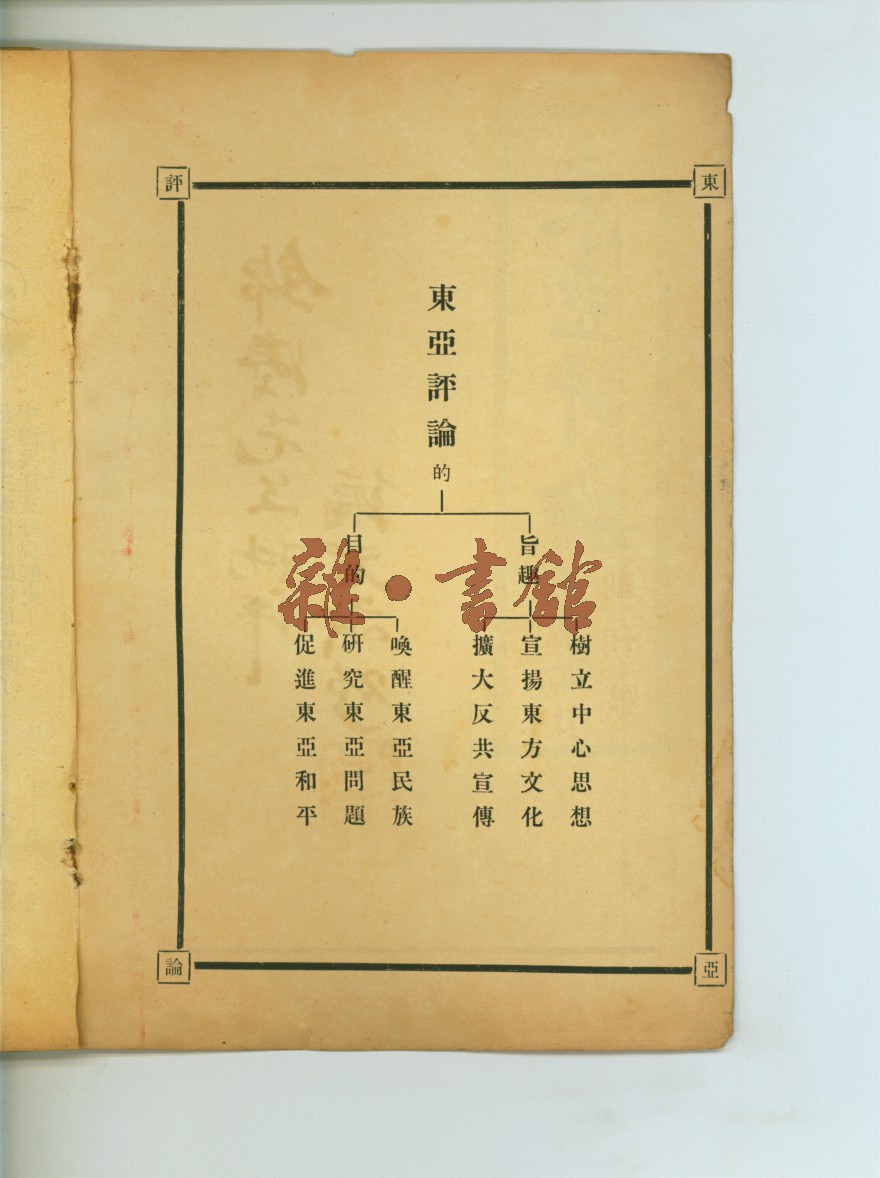 東
亞
評
論
東亞評論的
旨趣
樹立中心思想
宣揚東方文化
擴大反共宣傳
目的
喚醒東亞民族
研究東亞問題
促進東亞和平
雜·書館